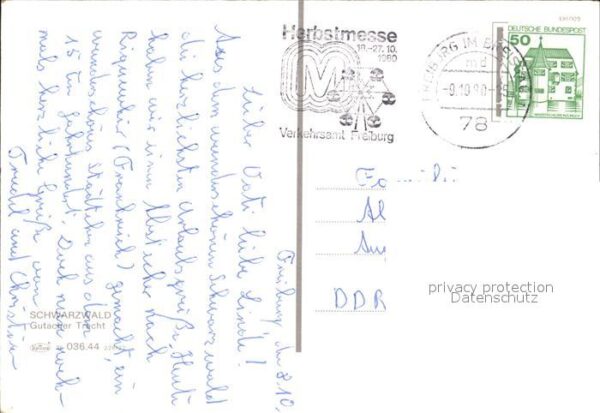 Herbstmesse
18.-27.10.
1980
M
Verkehrsamt Freiburg
FREIBURG IM BREISGAU
md
-9.10.80-
78
DEUTSCHE BUNDESPOST
50
Freiburg, den 8.10.
Lieber Vati, liebe Linde!
Aus dem wunderschönen Schwarzwald
die herzlichsten Urlaubsgrüße. Heute
haben wir einen Abstecher nach
Riquewihr (Frankreich) gemacht, ein
wunderschönes Städtchen aus dem
15. ten Jahrhundert. Doch nun noch-
mals herzliche Grüße von
Trudl und Christin
DDR
privacy protection
Datenschutz
SCHWARZWALD
Gutacher Tracht
036.44